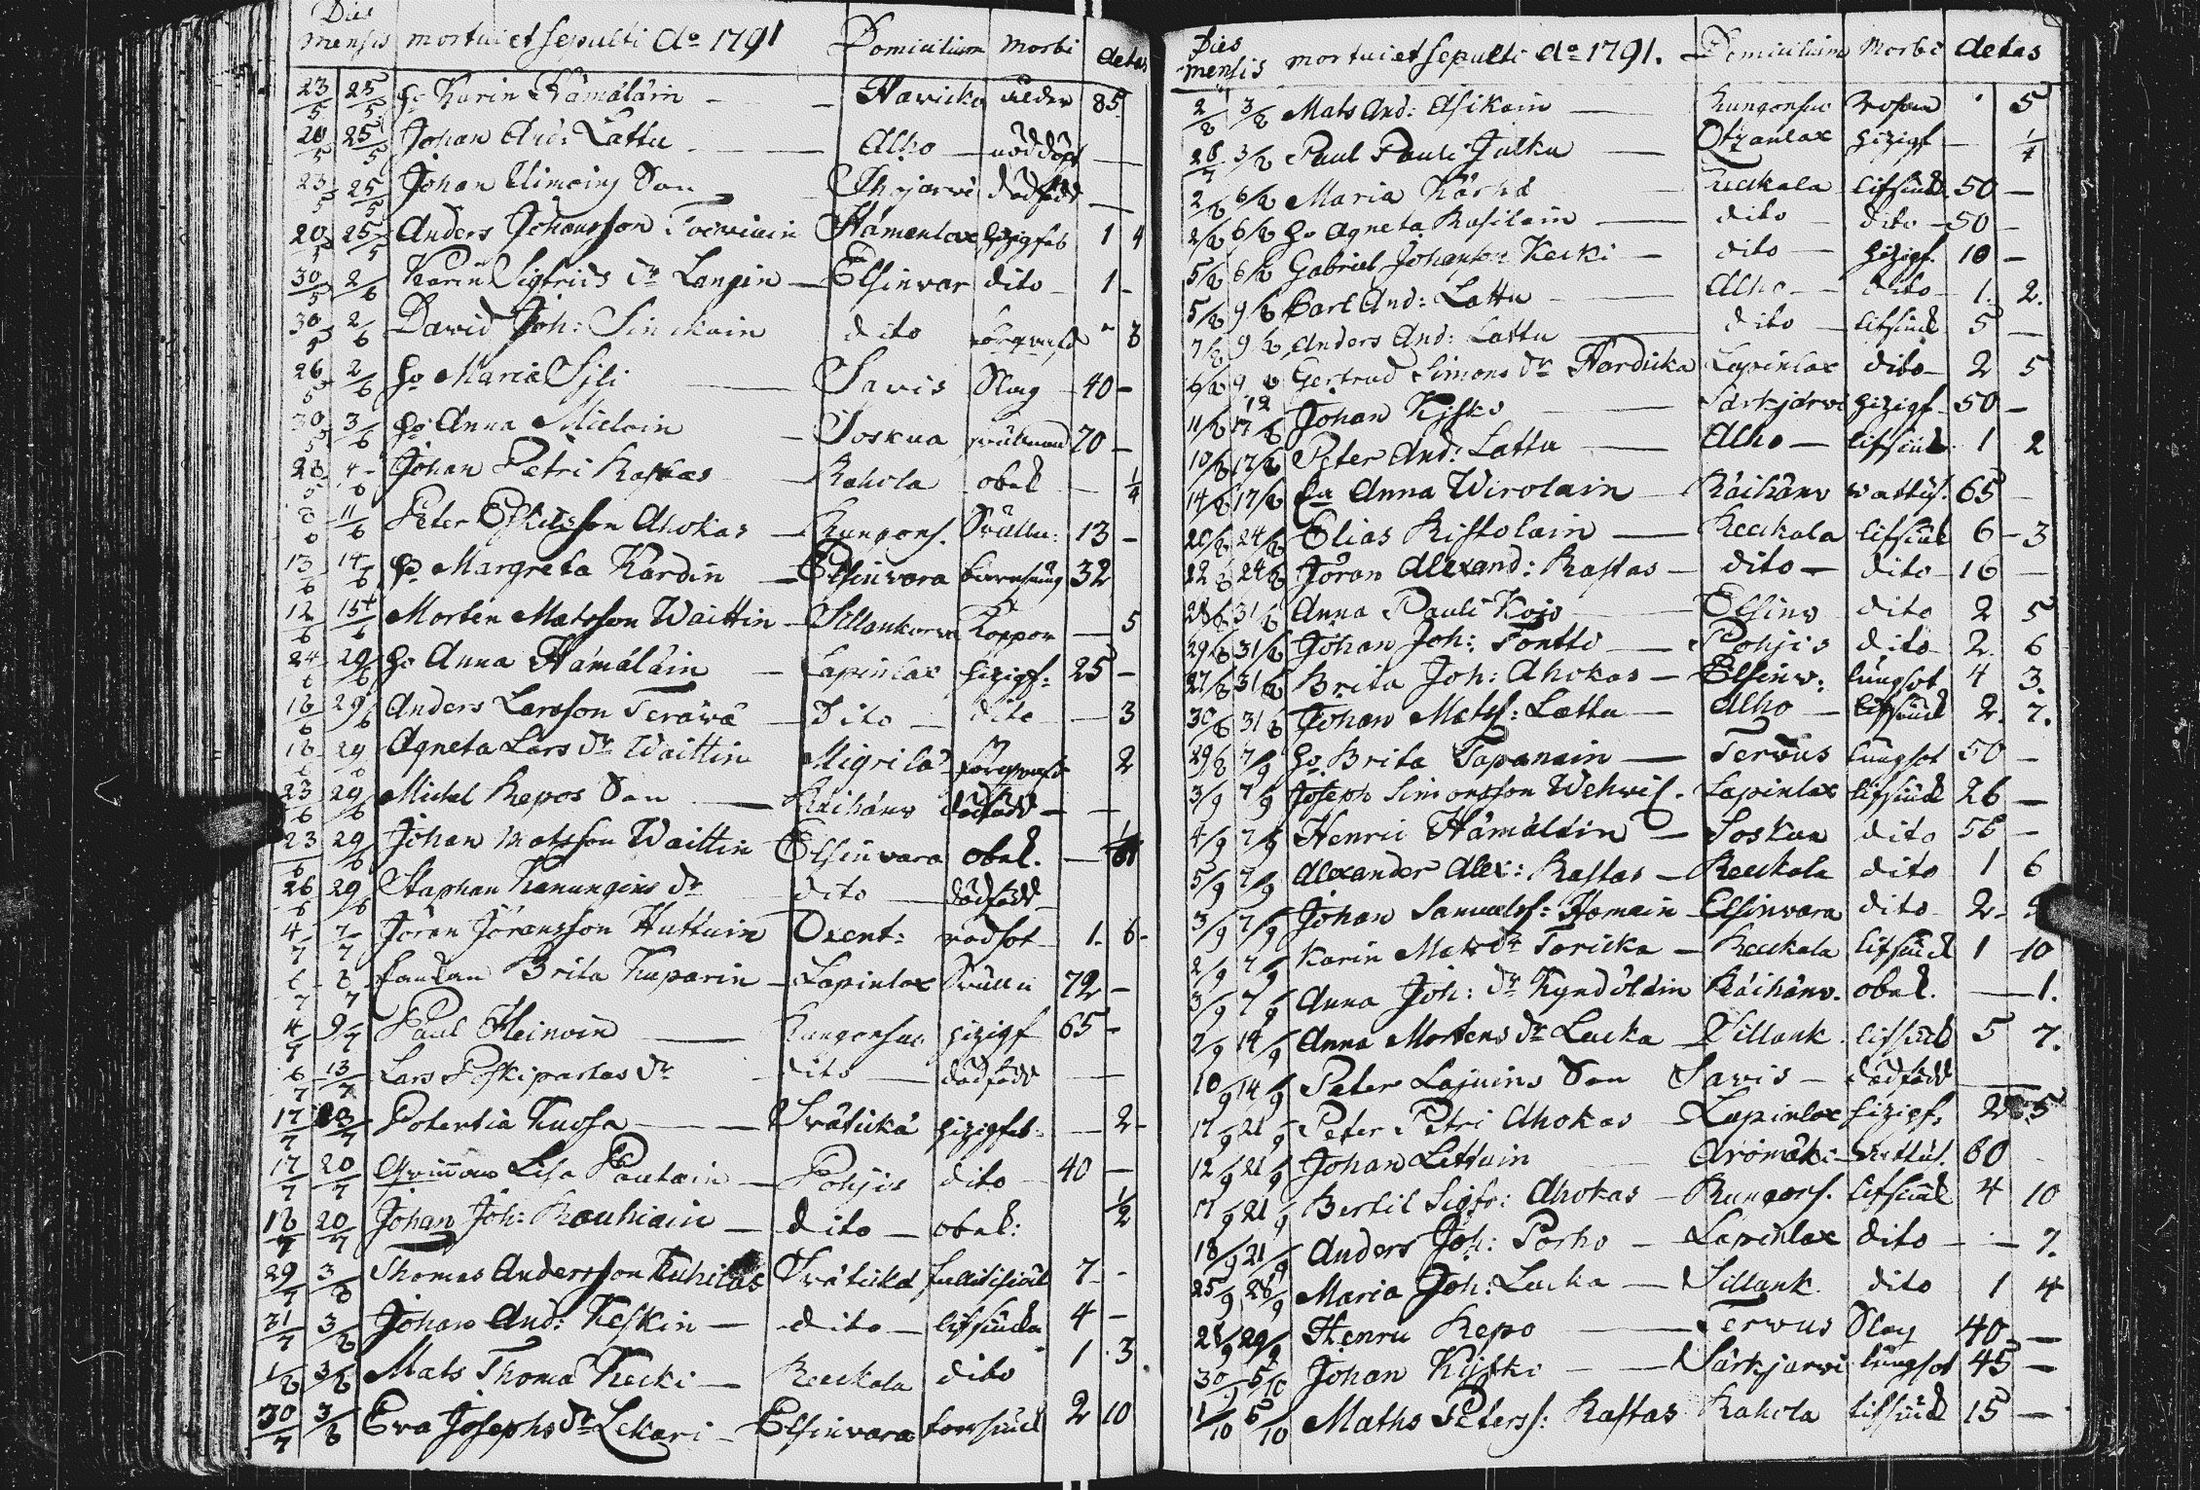 Dies
mensis mortui et sepulti Ao 1791 Domicilium Morbi aetas
23/5 25/5 Ho Karin Hämäläin Havicko ålder 85
20/5 25/5 Johan And: Lattu Alho nöddöpt
23/5 25/5 Johan Son dödföd
20/5 25/5 Anders Johansson Hämenlax hizigfeb 1 4
30/5 2/6 Karin Sigfrids Dr Langin Elsinvar dito 1 -
30/5 2/6 David Joh: dito 3
26/5 2/6 Ho Maria Sili Savis Slag 40 -
30/5 3/6 Ho Anna Mieloin Soskua 70 -
4/6 Johan Petri Rastas Kahola obek 1/4
11/6 Peter Eskilsson Ahokas Kungors. Svulln: 13 -
13/6 14/6 Ho Margreta Kardin Elsinvara barnsäng 32
12/6 15/6 Morten Matsson Waittin Sillankorva Koppor 5
24/6 29/6 Ho Anna Hämäläin Lapinlax hizigf: 25 -
16/6 29/6 Anders Larsson Teräwä Dito dito 3
29 Agneta Lars Dr Waittin Migrilä 2
23/6 29/6 Michel Repos Son Räihänv dödfödd
23/6 29/6 Johan Matsson Waittin Elsinvara obek.
26/6 29/6 Staphan Kanungins Dr dito dödfödd
4/7 7/7 Jöran Jöransson Huttuin Oxent: rödsot 1. 6
6/7 8/7 Enckan Brita Kuparin Lapinlax Svulln 72 -
4/7 9/7 Paul Heinoin Kungorsuo hizigf 65 -
6/7 13/7 Lars Poskipartas Dr dito dödfödd
17/7 Potentia Kuosa Srätickä hizigfeb 2
17/7 20/7 Lisa Pautain Pohjis dito 40
16/7 20/7 Johan Joh: Rouhiain dito obek: 1/2
29/7 3/8 Thomas Andersson Srätickä 7 -
31/7 3/8 Johan And: Keskin dito lifsiuka 4 -
1/8 3/8 Mats Thoma Kecki Reuskala dito 1 3
30/7 3/8 Eva Josephs Dr Lekari Elsinvara 2 10
Dies
mensis mortui et sepulti Ao 1791. Domicilium Morbi aetas
2/8 3/8 Mats And: Asikain Kungorsuo rosen 5
28/7 3/8 Paul Pauli Julku Otzanlax hizigf 1/4
2/8 6/8 Maria Kärnä Reuskala lifsiuk. 50 -
2/8 6/8 Ho Agneta Rasilain dito dito 50 -
5/8 6/8 Gabriel Johansson Kecki dito hizigf. 10 -
5/8 9/8 Carl And: Lattu Alho dito 1. 2.
7/8 9/8 Anders And: Lattu dito lifsiuk 5
6/8 9/8 Gertrud Simons Dr Hardicka Lapinlax dito 2 5
11/8 Johan Kyske Särkjärvi hizigf 50 -
10/8 17/8 Peter And: Lattu Alho lifsiuk 1 2
14/8 17/8 Anna Wirolain Räihänv wattus. 65
20/8 24/8 Elias Ristolain Reuskala lifsiuk 6 3
22/8 24/8 Jöran Alexand: Rastas dito dito 16
28/8 31/8 Anna Pauli Kojo Elsinv dito 2 5
29/8 31/8 Johan Joh: Tontti Pohjis dito 2. 6
27/8 31/8 Brita Joh: Ahokas Elsinv. lungsot 4 3.
30/8 31/8 Johan Matss: Lattu Alho lifsiuk 2. 7.
29/8 7/9 Ho Brita Tapanain Tervus lungsot 50
3/9 7/9 Joseph Simonsson Wehvil. Lapinlax lifsiuk 26
4/9 7/9 Henric Hämäläin Soskua dito
5/9 7/9 Alexander Alex: Rastas Reuskala dito 1 6
3/9 7/9 Johan Samuelss: Homain Elsinvara dito 2
2/9 7/9 Karin Mats Dr Toricka Reuskala lifsiuk 1 10
3/9 7/9 Anna Joh: Dr Kyndöläin Räihänv. obek. 1.
2/9 14/9 Anna Mortens Dr Lucka Sillank lifsiuk 5 7.
10/9 14/9 Peter Lajuins Son Savis dödfödd
17/9 21/9 Peter Petri Ahokas Lapinlax hizigf. 5
12/9 21/9 Johan Lettuin Aromäki wattus. 60
17/9 21/9 Bertil Sigfr: Ahokas Kungors. lifsiuk 4 10
18/9 21/9 Anders Joh: Porho Lapinlax dito 7.
25/9 28/9 Maria Joh: Lucka Sillank. dito 1 4
29/9 Henric Repo Tervus Slag 40
30/9 5/10 Johan Kyske Särkjärvi lungsot 45
1/10 5/10 Mathis Peterss: Rastas Kahola lifsiuk 15